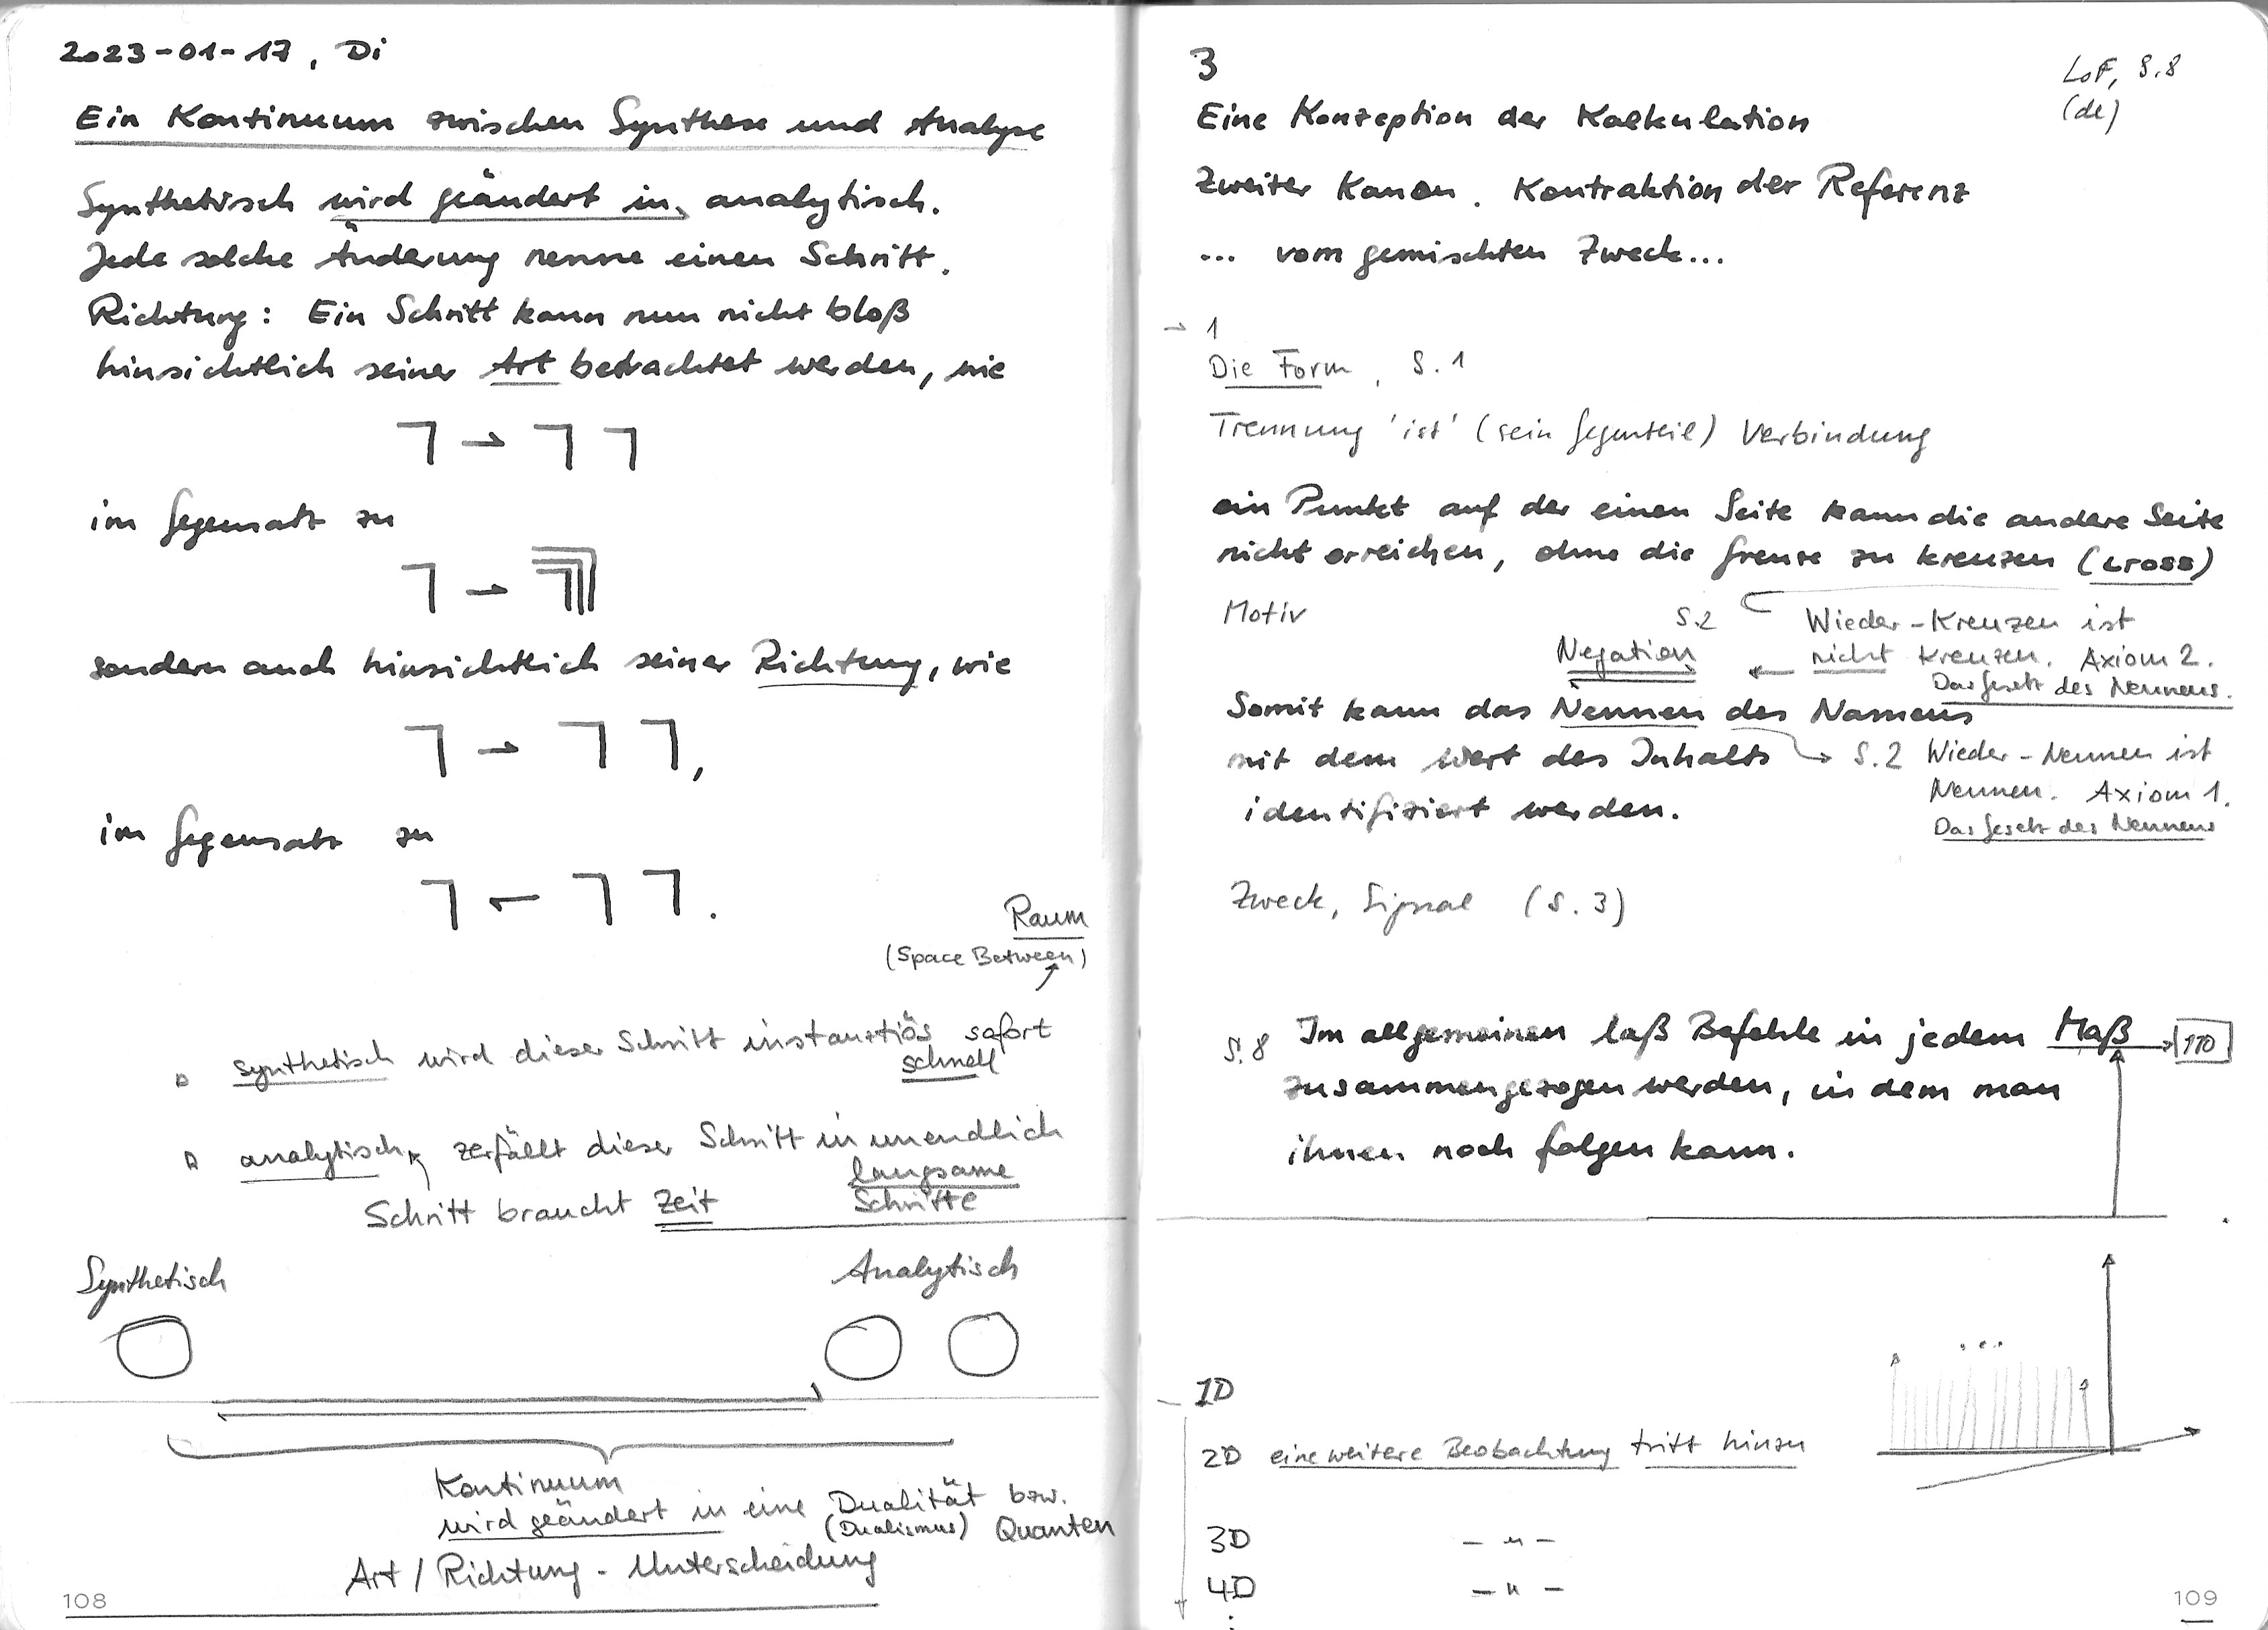 2023-01-17, Di
Ein Kontinuum zwischen Synthese und Analyse
Synthetisch wird geändert in analytisch.
Jede solche Änderung nenne einen Schritt.
Richtung: Ein Schritt kann nun nicht bloß
hinsichtlich seiner Art betrachtet werden, wie
im Gegensatz zu
sondern auch hinsichtlich seiner Richtung, wie
im Gegensatz zu
Raum
(Space Between)
synthetisch wird dieser Schritt instantiös sofort
schnell
analytisch, zerfällt dieser Schritt in unendlich
langsame
Schritt braucht Zeit Schritte
Synthetisch Analytisch
Kontinuum
wird geändert in eine Dualität bzw.
(Dualismus) Quanten
Art / Richtung - Unterscheidung
108
3
LoF, S.8
(de)
Eine Konzeption der Kalkulation
Zweiter Kanon. Kontraktion der Referenz
... vom gemischten Zweck...
→ 1
Die Form, S. 1
Trennung 'ist' (sein Gegenteil) Verbindung
ein Punkt auf der einen Seite kann die andere Seite
nicht erreichen, ohne die Grenze zu kreuzen (cross)
Motiv
S.2 Wieder-Kreuzen ist
Negation ← nicht Kreuzen. Axiom 2.
Das Gesetz des Nennens.
Somit kann das Nennen des Namens
mit dem Wert des Inhalts → S.2 Wieder-Nennen ist
Nennen. Axiom 1.
identifiziert werden.
Das Gesetz des Nennens
Zweck, Signal (S. 3)
S.8 Im allgemeinen laß Befehle in jedem Maß → 110
zusammengezogen werden, in dem man
ihnen noch folgen kann.
1D
2D eine weitere Beobachtung tritt hinzu
3D – " –
4D – " –
109